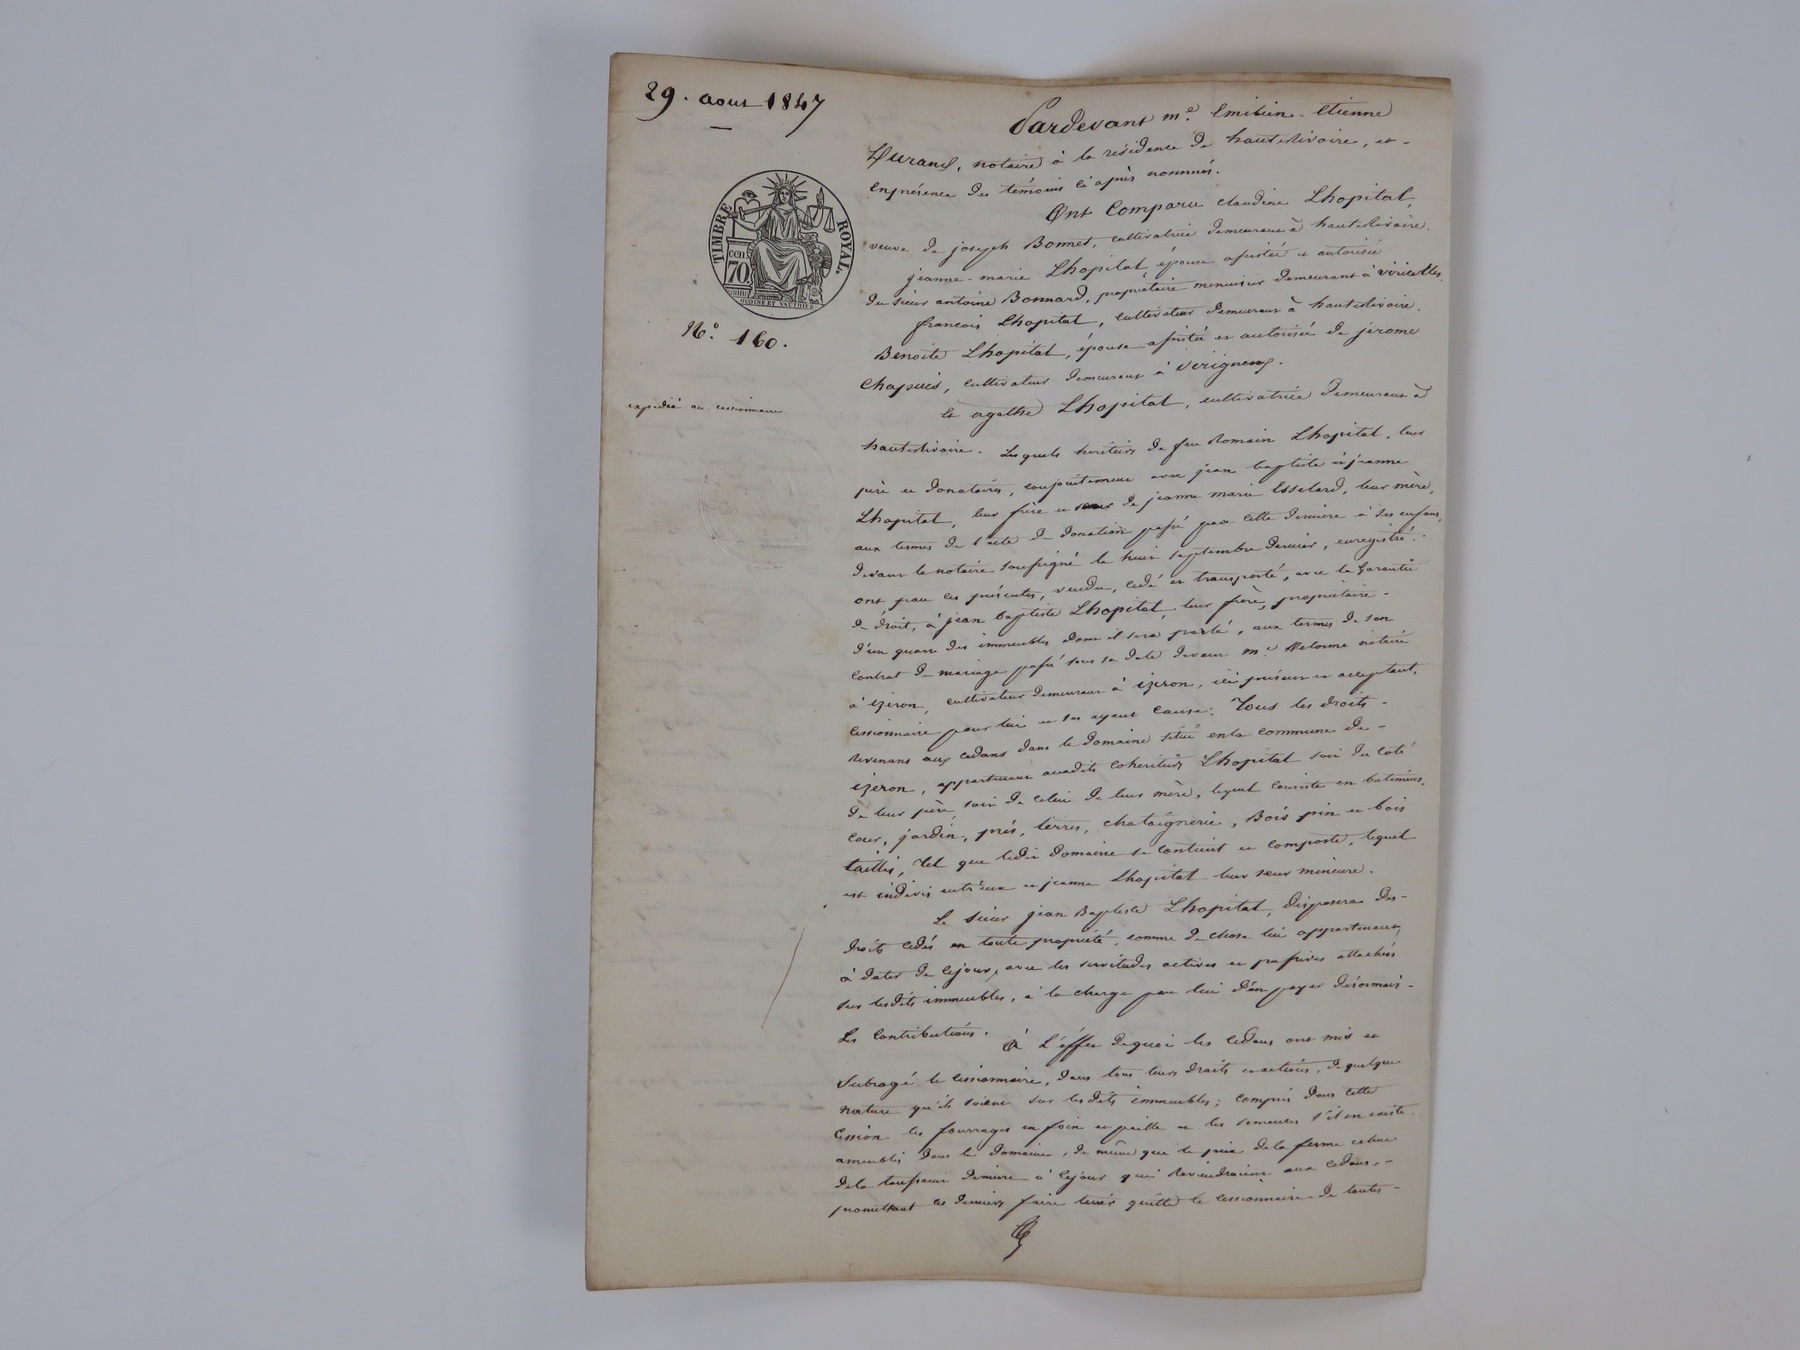 29. aout 1847
Pardevant me. Emilien-Etienne
Durand, notaire à la résidence de hauterivoire, et-
En présence des témoins ci après nommés.
TIMBRE ROYAL.
cen
70
Ont Comparu claudine Lhopital,
veuve de joseph Bonnet, cultivatrice demeurant à hauterivoire.
jeanne-marie Lhopital, épouse assistée et autorisée
du sieur antoine Bonnard, propriétaire menuisier demeurant à viricelles.
françois Lhopital, cultivateur demeurant à hauterivoire.
No. 160.
Benoite Lhopital, épouse assistée et autorisée de jérome
Chapuis, cultivateur demeurant à Verigneux.
expédié au cessionnaire
Et agathe Lhopital, cultivatrice demeurant à
hauterivoire. Lesquels héritiers de feu Romain Lhopital, leur
père et donataires, conjointement avec jean baptiste et jeanne
Lhopital, leur frère et soeur de jeanne marie Esselard, leur mère,
aux termes de l'acte de donation passé par cette dernière à ses enfans,
devant le notaire soussigné le huit septembre dernier, enregistré.
ont par ces présentes, vendu, cédé et transporté, avec la Garantie
de droit, à jean baptiste Lhopital, leur frère, propriétaire-
d'un quart des immeubles dont il sera parlé, aux termes de son
Contrat de mariage passé sous sa date devant me. notaire
à izeron, cultivateur demeurant à izeron, ici présent et acceptant,
Cessionnaire pour lui et ses ayant cause: Tous les droits-
Revenans aux cedans dans le domaine situé en la commune de-
izeron, appartenant auxdits cohéritiers Lhopital soit du coté
de leur père, soit de celui de leur mère, lequel consiste en batimens,
Cour, jardin, prés, terres, chataignerie, Bois pin et bois
taillis, Tel que ledit domaine se contient et comporte, lequel
est indivis entr'eux et jeanne Lhopital leur soeur mineure.
Le sieur jean Baptiste Lhopital, disposera des-
droits cédés en toute propriété, comme de chose lui appartenant,
à dater de ce jour, avec les servitudes actives et passives attachées
sur lesdits immeubles, à la charge par lui d'en payer désormais-
Les Contributions. À L'effet de quoi les cedans ont mis et
Subrogé le Cessionnaire, dans tous leurs droits et actions, de quelque
nature qu'ils soient sur lesdits immeubles; compris dans cette
Cession les fourrages en foin et paille et les semences s'il en existe
ameublis dans le domaine, de même que le prix de la ferme
de la toussaint dernière à ce jour qui Reviendraient aux cedans,-
promettant ces derniers faire tenir quitte le cessionnaire de toutes-